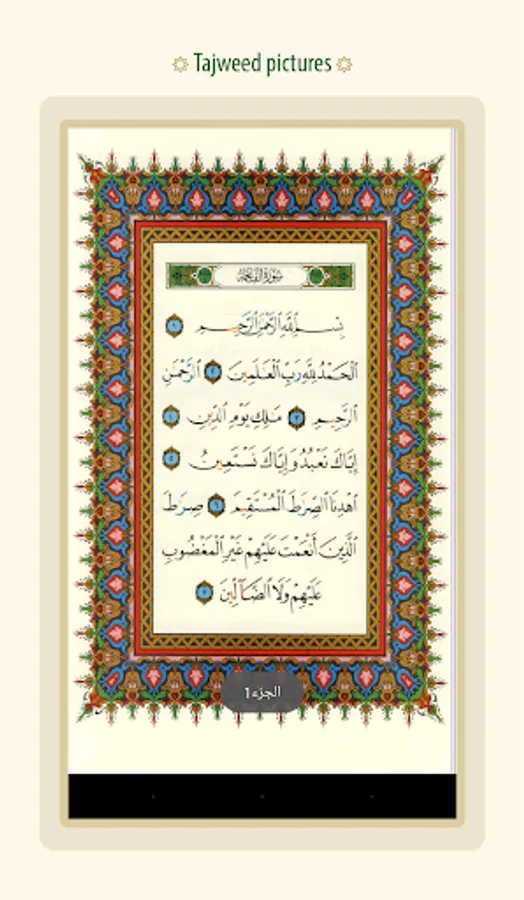 Tajweed pictures
سُورَةُ الفَاتِحَة
بِسْمِ ٱللَّهِ ٱلرَّحْمَٰنِ ٱلرَّحِيمِ ١
ٱلْحَمْدُ لِلَّهِ رَبِّ ٱلْعَٰلَمِينَ ٢ ٱلرَّحْمَٰنِ
ٱلرَّحِيمِ ٣ مَٰلِكِ يَوْمِ ٱلدِّينِ ٤
إِيَّاكَ نَعْبُدُ وَإِيَّاكَ نَسْتَعِينُ ٥
ٱهْدِنَا ٱلصِّرَٰطَ ٱلْمُسْتَقِيمَ ٦ صِرَٰطَ
ٱلَّذِينَ أَنْعَمْتَ عَلَيْهِمْ غَيْرِ ٱلْمَغْضُوبِ
عَلَيْهِمْ وَلَا ٱلضَّآلِّينَ ٧
الجزء1